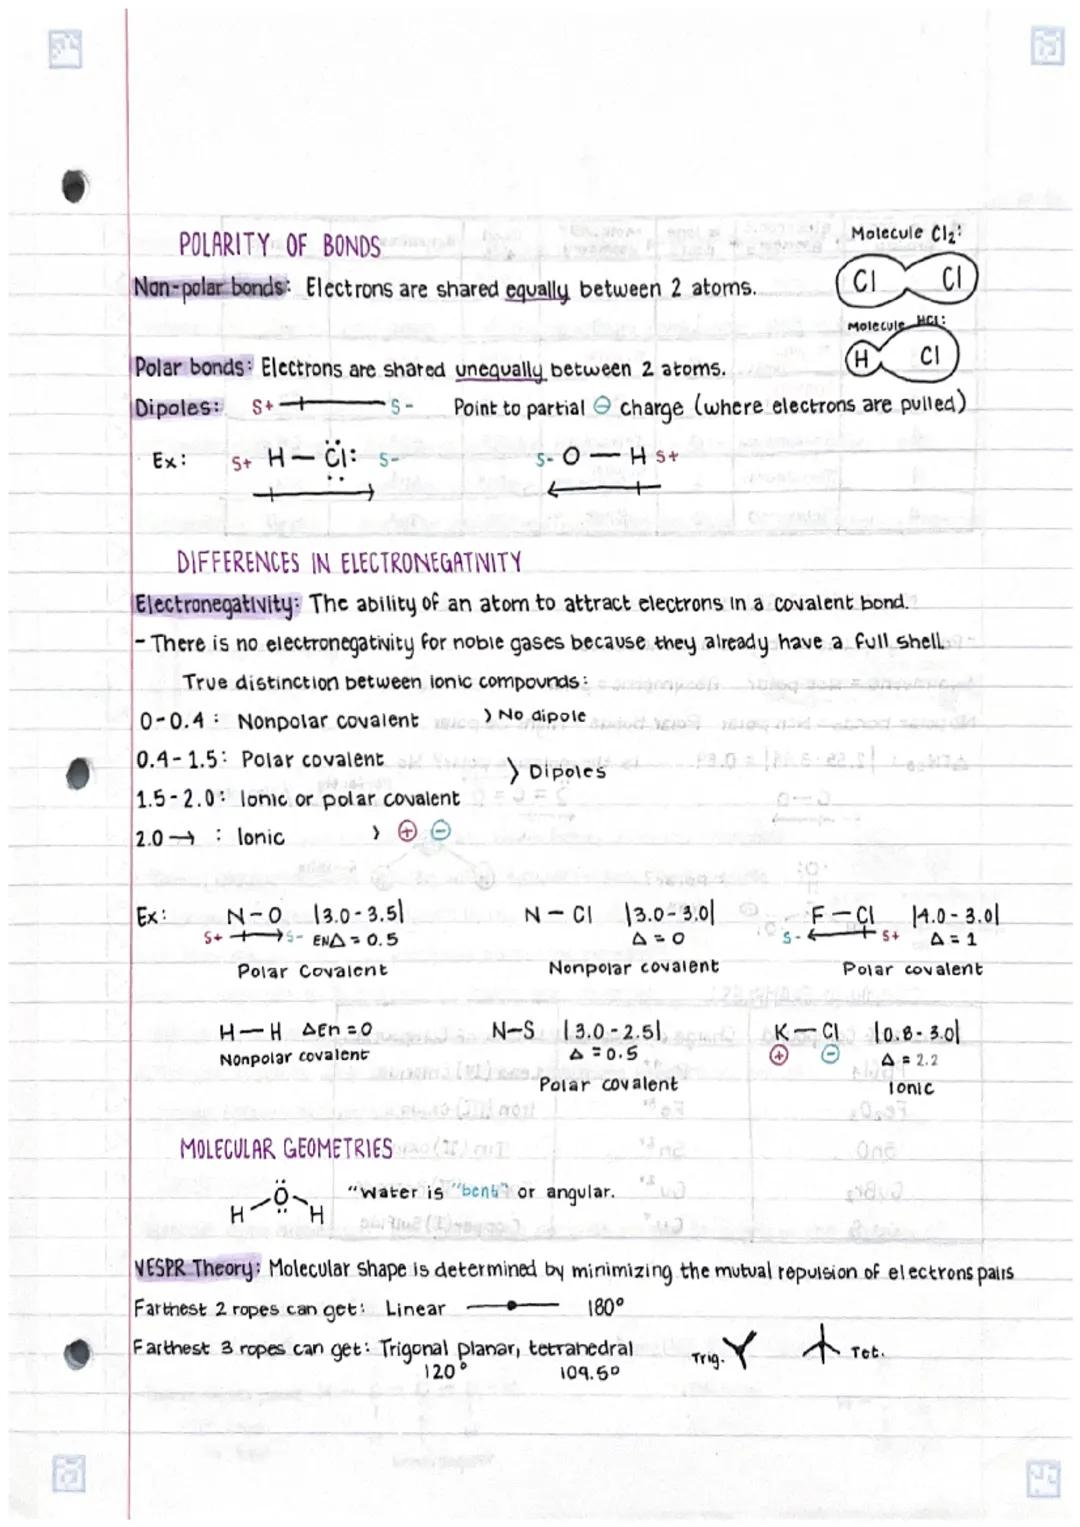 POLARITY OF BONDS
Molecule Cl2:
Non-polar bonds: Electrons are shared equally between 2 atoms.
Cl Cl
Molecule HCl:
H Cl
Polar bonds: Electrons are shared unequally between 2 atoms.
Dipoles: S+ S- Point to partial ⊖ charge (where electrons are pulled)
Ex: S+ H — Cl: S- S- O — H S+
DIFFERENCES IN ELECTRONEGATIVITY
Electronegativity: The ability of an atom to attract electrons in a covalent bond.
- There is no electronegativity for noble gases because they already have a full shell.
True distinction between ionic compounds:
0-0.4: Nonpolar covalent } No dipole
0.4-1.5: Polar covalent
} Dipoles
1.5-2.0: Ionic or polar covalent
2.0 → : Ionic } ⊕ ⊖
Ex: N-O |3.0-3.5| N - Cl |3.0-3.0| F - Cl |4.0-3.0|
S+ S- ENΔ = 0.5 Δ = 0 S- S+ Δ = 1
Polar Covalent Nonpolar covalent Polar covalent
H — H ΔEn = 0 N-S |3.0-2.5| K - Cl |0.8-3.0|
Nonpolar covalent Δ = 0.5 ⊕ ⊖ Δ = 2.2
Polar covalent Ionic
MOLECULAR GEOMETRIES
O "Water is "bent" or angular.
H H
VESPR Theory: Molecular shape is determined by minimizing the mutual repulsion of electrons pairs
Farthest 2 ropes can get: Linear 180°
Farthest 3 ropes can get: Trigonal planar, tetrahedral Trig. Tet.
120° 109.5°